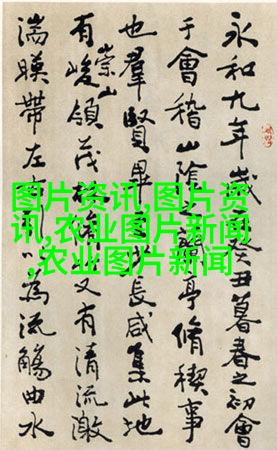 图片资讯,图片资
讯,农业图片新闻
,农业图片新闻
永和九年歲癸丑暮春之初會
于會稽山陰之蘭亭脩稧事
也羣賢畢長咸集此地
有崇山峻領茂林脩又有清流激
湍暎帶左以為流觴曲水